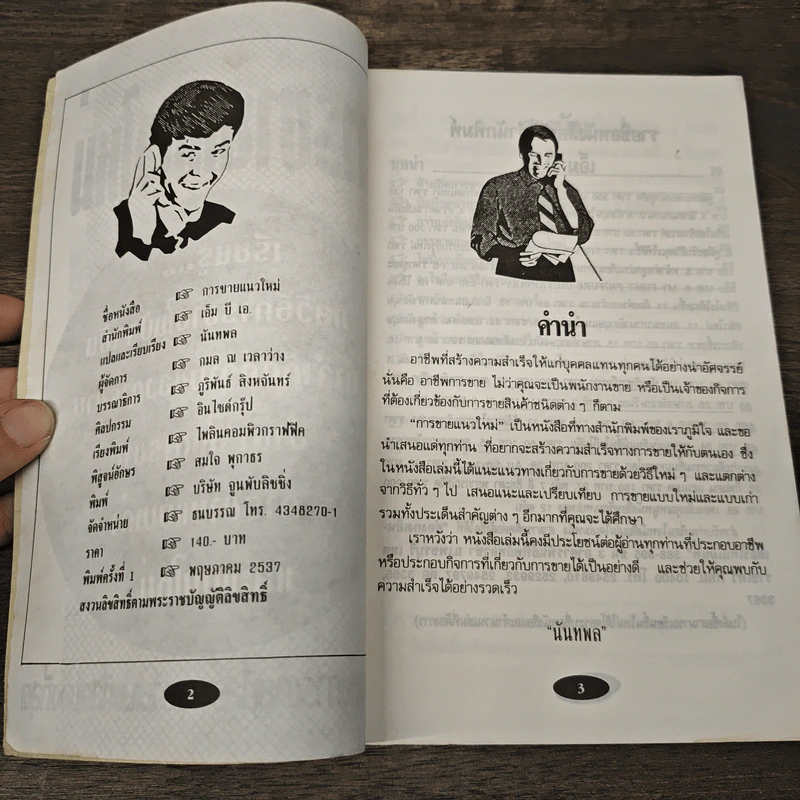 ชื่อหนังสือ ☞ การขายแนวใหม่
สำนักพิมพ์ ☞ เอ็ม บี เอ.
แปลและเรียบเรียง ☞ นันทพล
ผู้จัดการ ☞ กมล ณ เวลาว่าง
บรรณาธิการ ☞ ภูริพันธ์ สิงหจันทร์
ศิลปกรรม ☞ อินไซด์กรุ๊ป
เรียงพิมพ์ ☞ ไพลินคอมพิวกราฟฟิค
พิสูจน์อักษร ☞ สมใจ พุกาธร
พิมพ์ ☞ บริษัท จูนพับลิชชิ่ง
จัดจำหน่าย ☞ ธนบรรณ โทร. 4348270-1
ราคา ☞ 140.- บาท
พิมพ์ครั้งที่ 1 ☞ พฤษภาคม 2537
สงวนลิขสิทธิ์ตามพระราชบัญญัติลิขสิทธิ์
2
คำนำ
อาชีพที่สร้างความสำเร็จให้แก่บุคคลแทบทุกคนได้อย่างน่าอัศจรรย์
นั่นคือ อาชีพการขาย ไม่ว่าคุณจะเป็นพนักงานขาย หรือเป็นเจ้าของกิจการ
ที่ต้องเกี่ยวข้องกับการขายสินค้าชนิดต่าง ๆ ก็ตาม
“การขายแนวใหม่” เป็นหนังสือที่ทางสำนักพิมพ์ของเราภูมิใจ และขอ
นำเสนอแด่ทุกท่าน ที่อยากจะสร้างความสำเร็จทางการขายให้กับตนเอง ซึ่ง
ในหนังสือเล่มนี้ได้แนะแนวทางเกี่ยวกับการขายด้วยวิธีใหม่ ๆ และแตกต่าง
จากวิธีทั่ว ๆ ไป เสนอแนะและเปรียบเทียบ การขายแบบใหม่และแบบเก่า
รวมทั้งประเด็นสำคัญต่าง ๆ อีกมากที่คุณจะได้ศึกษา
เราหวังว่า หนังสือเล่มนี้คงมีประโยชน์ต่อผู้อ่านทุกท่านที่ประกอบอาชีพ
หรือประกอบกิจการที่เกี่ยวกับการขายได้เป็นอย่างดี และช่วยให้คุณพบกับ
ความสำเร็จได้อย่างรวดเร็ว
“นันทพล”
3